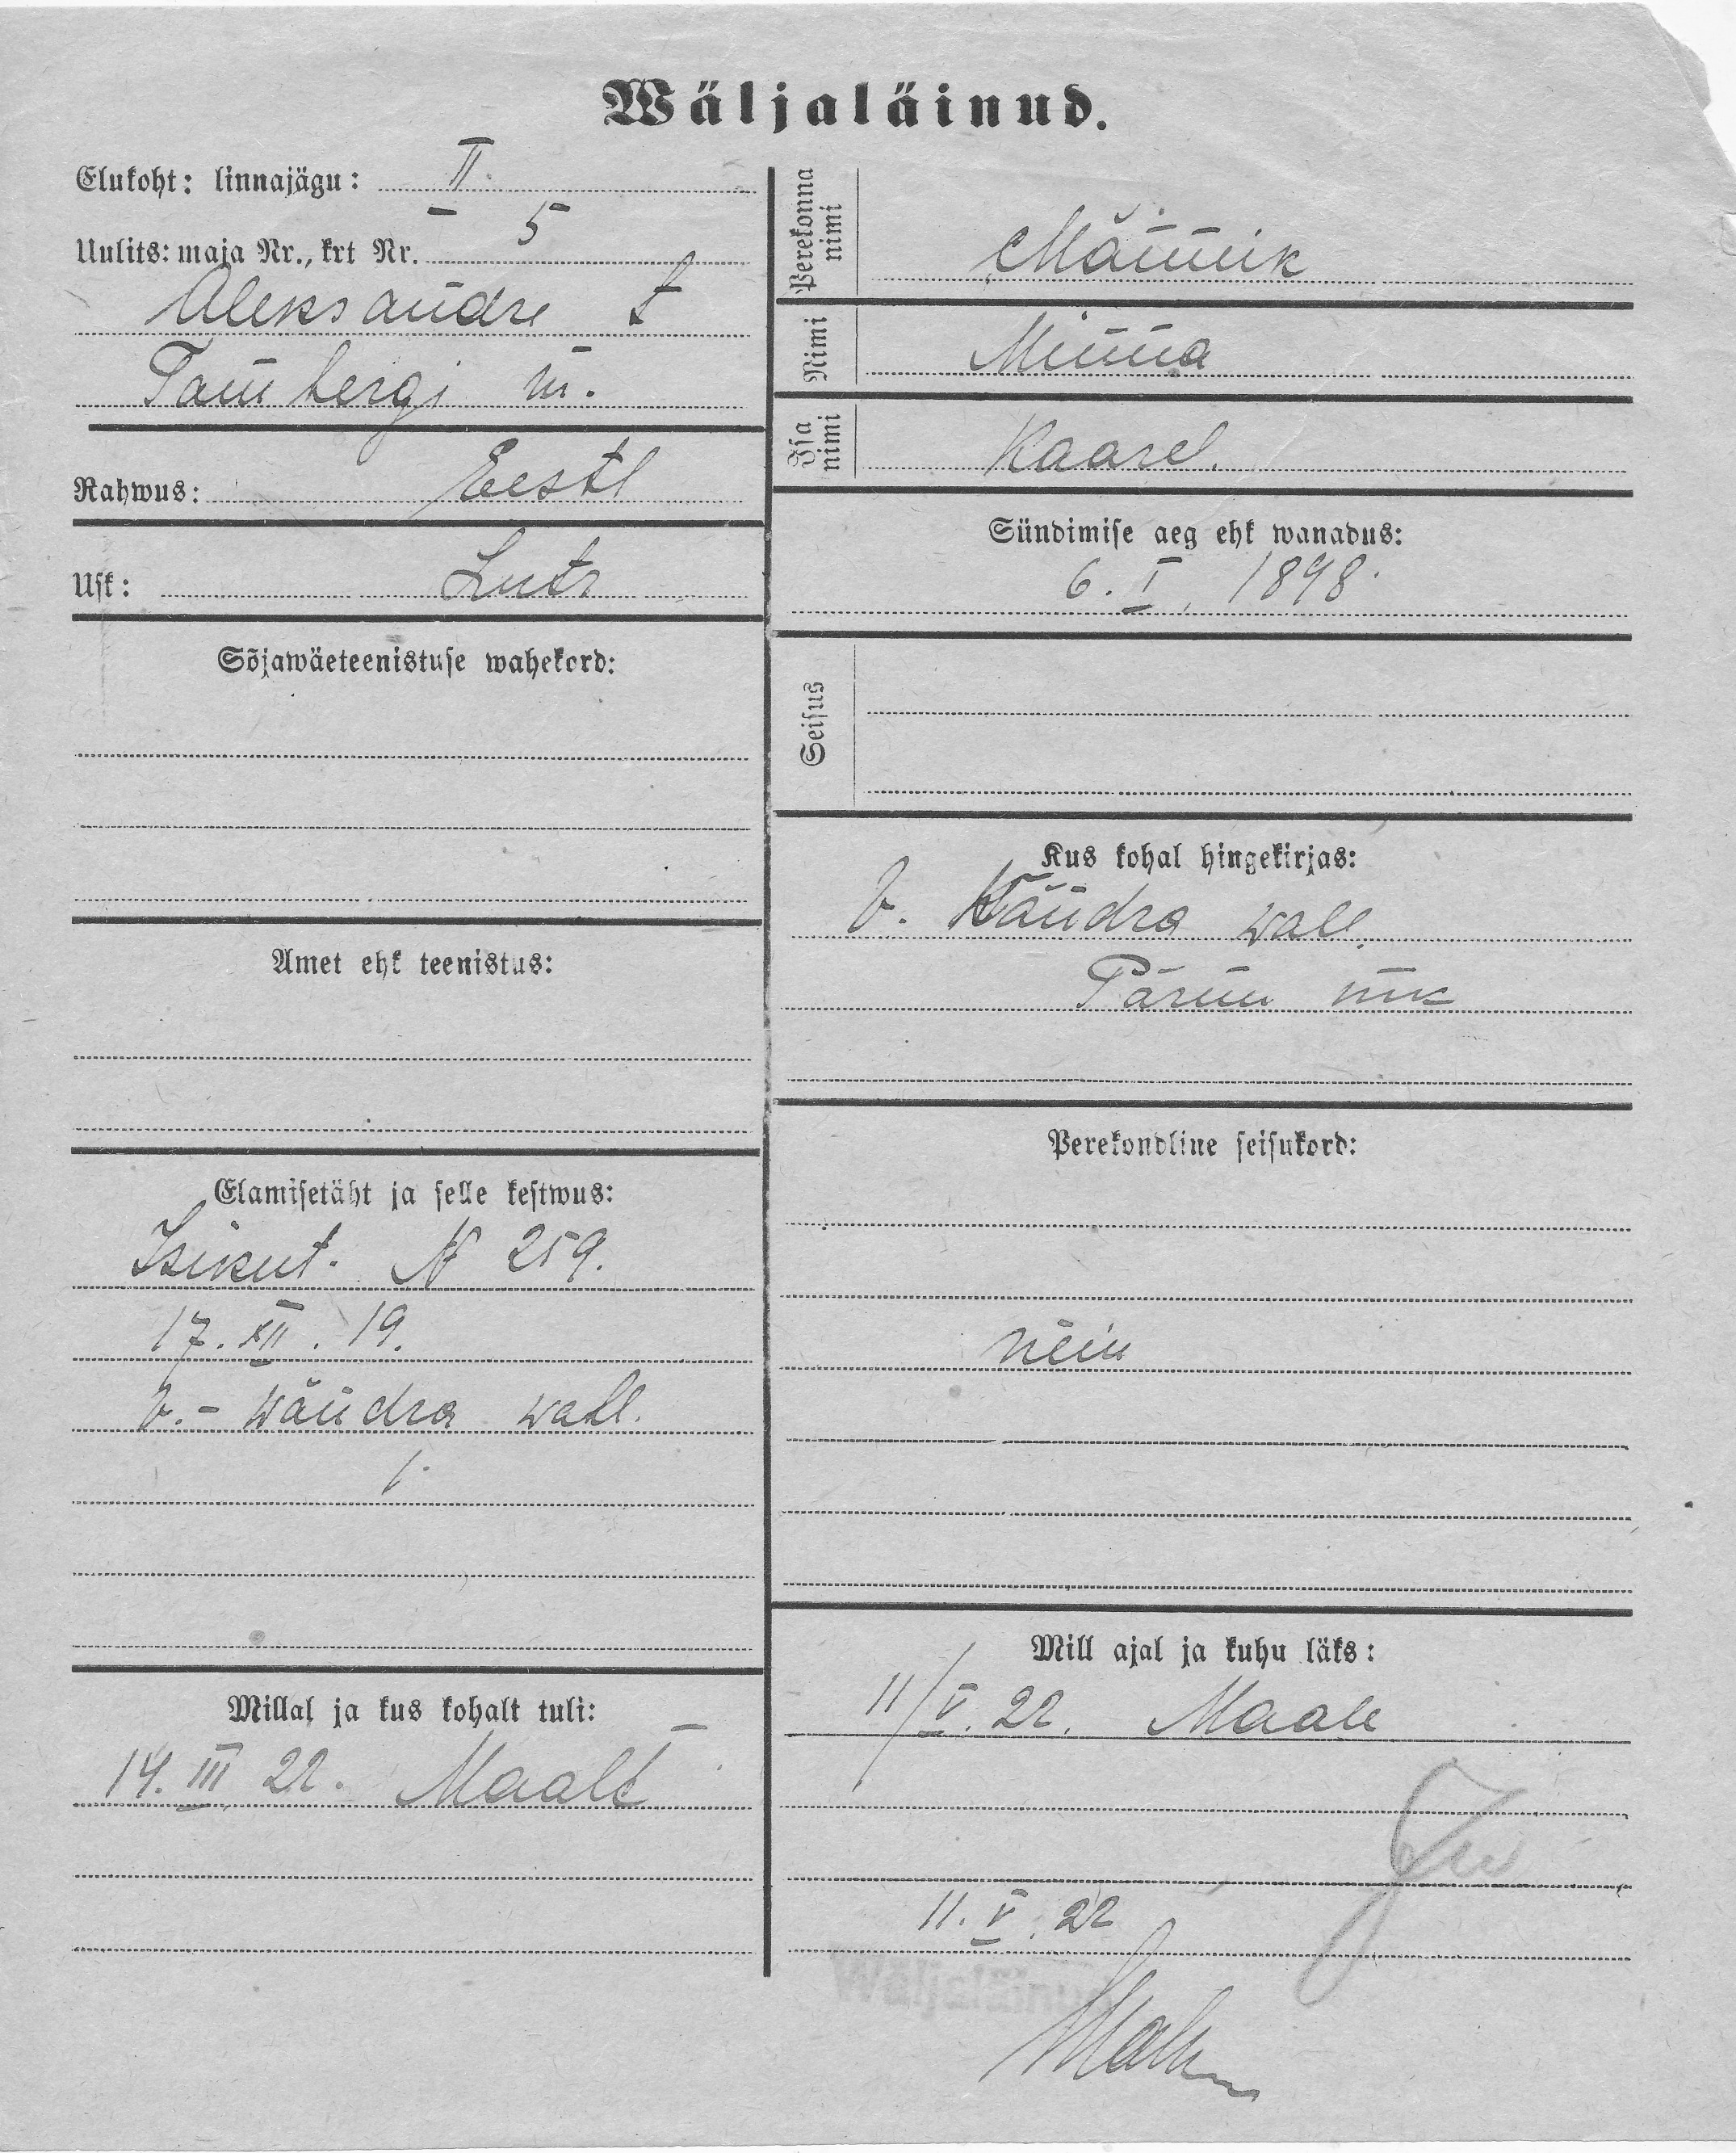 Wäljaläinud.
Elukoht: linnajägu: II.
Uulits: maja Nr., krt Nr. 5
Aleksandre t
Tambergi m.
Rahwus: Eestl
Usk: Lutr
Sõjawäeteenistuse wahekord:
Amet ehk teenistus:
Elamisetäht ja selle kestwus:
Isikut. N 259.
17. XII. 19.
V.- Wändra wall.
Millal ja kus kohalt tuli:
14. III 22. Maalt
Perekonna nimi Männik
Nimi Minna
Isa nimi Kaarel.
Sündimise aeg ehk wanadus:
6. I. 1898.
Seisus
Kus kohal hingekirjas:
V. Wändra wall.
Pärnu mk
Perekondline seisukord:
nein
Mill ajal ja kuhu läks:
11/V. 22. Maale
11. V. 22
Wäljaläinud